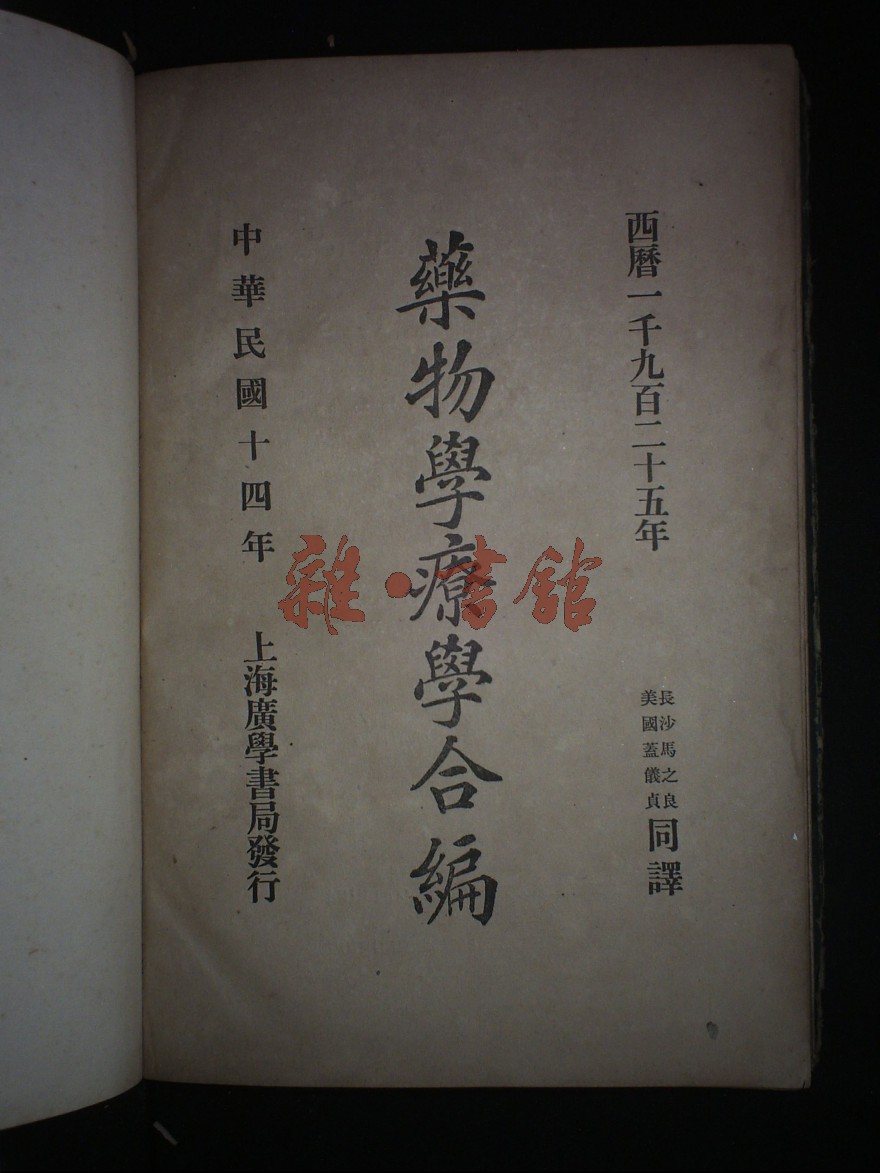 西曆一千九百二十五年
長沙馬之良
美國蓋儀貞
同譯
藥物學療學合編
中華民國十四年
上海廣學書局發行
雜·書館